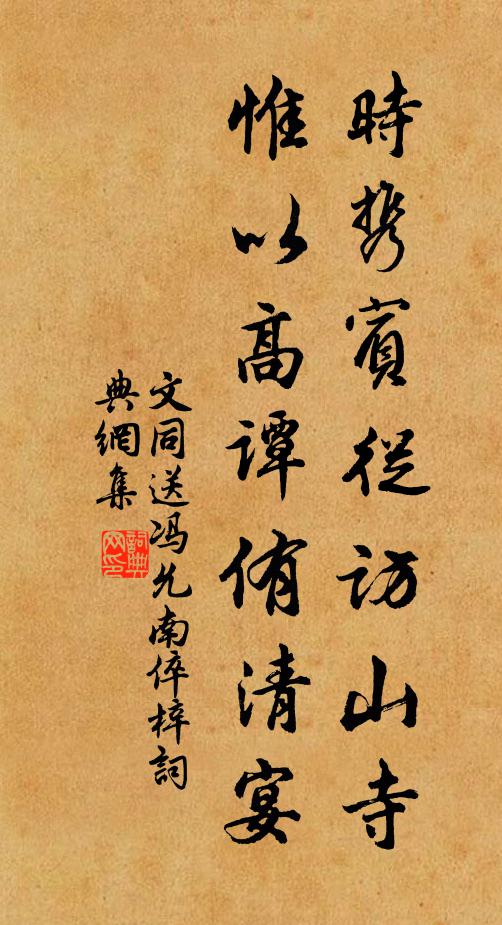 時携賓從訪山寺
惟以高譚侑清宴
文同送冯允南倅梓詞
典網集
詞典
网印